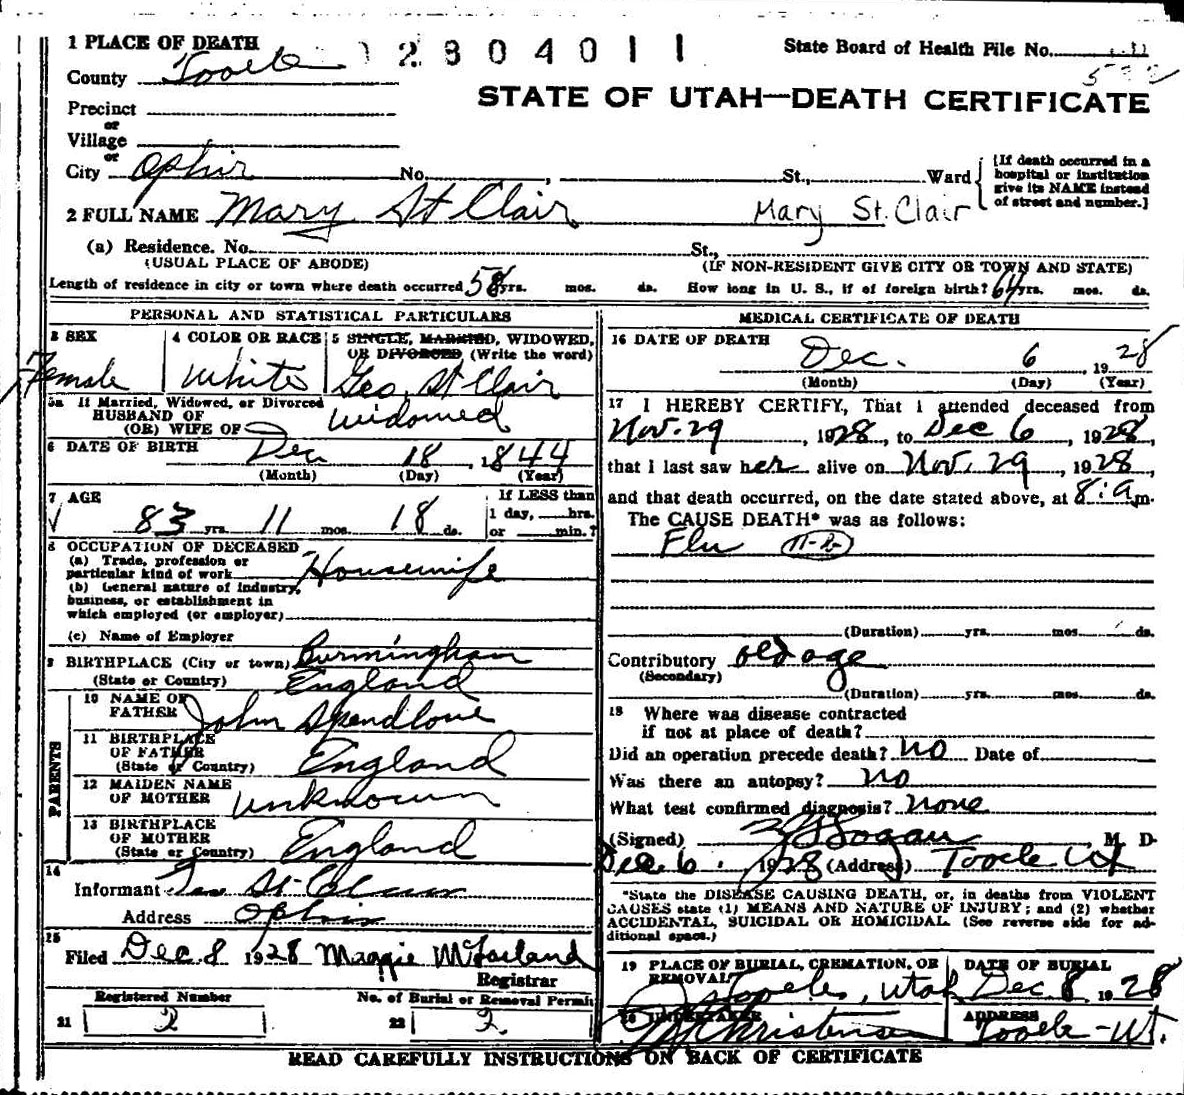 1 PLACE OF DEATH 2804011 State Board of Health File No.
County Tooele
STATE OF UTAH—DEATH CERTIFICATE
Precinct
or
Village
or
City Ophir No. , St., Ward {[If death occurred in a hospital or institution give its NAME instead of street and number.]
2 FULL NAME Mary St Clair Mary St. Clair
(a) Residence. No. St.,
(USUAL PLACE OF ABODE) (IF NON-RESIDENT GIVE CITY OR TOWN AND STATE)
Length of residence in city or town where death occurred 58 yrs. mos. ds. How long in U. S., if of foreign birth? 64 yrs. mos. ds.
PERSONAL AND STATISTICAL PARTICULARS
3 SEX 4 COLOR OR RACE 5 SINGLE, MARRIED, WIDOWED,
OR DIVORCED (Write the word)
Female White Geo, St Clair
5a If Married, Widowed, or Divorced
HUSBAND OF
(OR) WIFE OF widowed
6 DATE OF BIRTH Dec 18, 1844
(Month) (Day) (Year)
7 AGE If LESS than
83 yrs. 11 mos. 18 ds. 1 day, hrs.
or min.?
8 OCCUPATION OF DECEASED
(a) Trade, profession or
particular kind of work Housewife
(b) General nature of industry,
business, or establishment in
which employed (or employer)
(c) Name of Employer
9 BIRTHPLACE (City or town) Burmingham
(State or Country) England
PARENTS
10 NAME OF
FATHER John Spendlove
11 BIRTHPLACE
OF FATHER
(State or Country) England
12 MAIDEN NAME
OF MOTHER unknown
13 BIRTHPLACE
OF MOTHER
(State or Country) England
14
Informant St Clair
Address Ophir
15
Filed Dec. 8 1928 Maggie McFarland
Registrar
Registered Number No. of Burial or Removal Permit
21 2 22 2
MEDICAL CERTIFICATE OF DEATH
16 DATE OF DEATH
Dec. 6 1928
(Month) (Day) (Year)
17 I HEREBY CERTIFY, That I attended deceased from
Nov. 29, 1928, to Dec 6, 1928,
that I last saw her alive on Nov. 29, 1928,
and that death occurred, on the date stated above, at 8:a m.
The CAUSE DEATH* was as follows:
Flu
(Duration) yrs. mos. ds.
Contributory old age
(Secondary)
(Duration) yrs. mos. ds.
18 Where was disease contracted
if not at place of death?
Did an operation precede death? no Date of
Was there an autopsy? no
What test confirmed diagnosis? none
(Signed) M D
Dec. 6, 1928 (Address) Tooele Ut
*State the DISEASE CAUSING DEATH, or, in deaths from VIOLENT
CAUSES state (1) MEANS AND NATURE OF INJURY; and (2) whether
ACCIDENTAL, SUICIDAL OR HOMICIDAL. (See reverse side for ad-
ditional space.)
19 PLACE OF BURIAL, CREMATION, OR DATE OF BURIAL
REMOVAL?
Tooele, Utah Dec. 8 1928
20 UNDERTAKER ADDRESS
Christensen Tooele-Ut.
READ CAREFULLY INSTRUCTIONS ON BACK OF CERTIFICATE